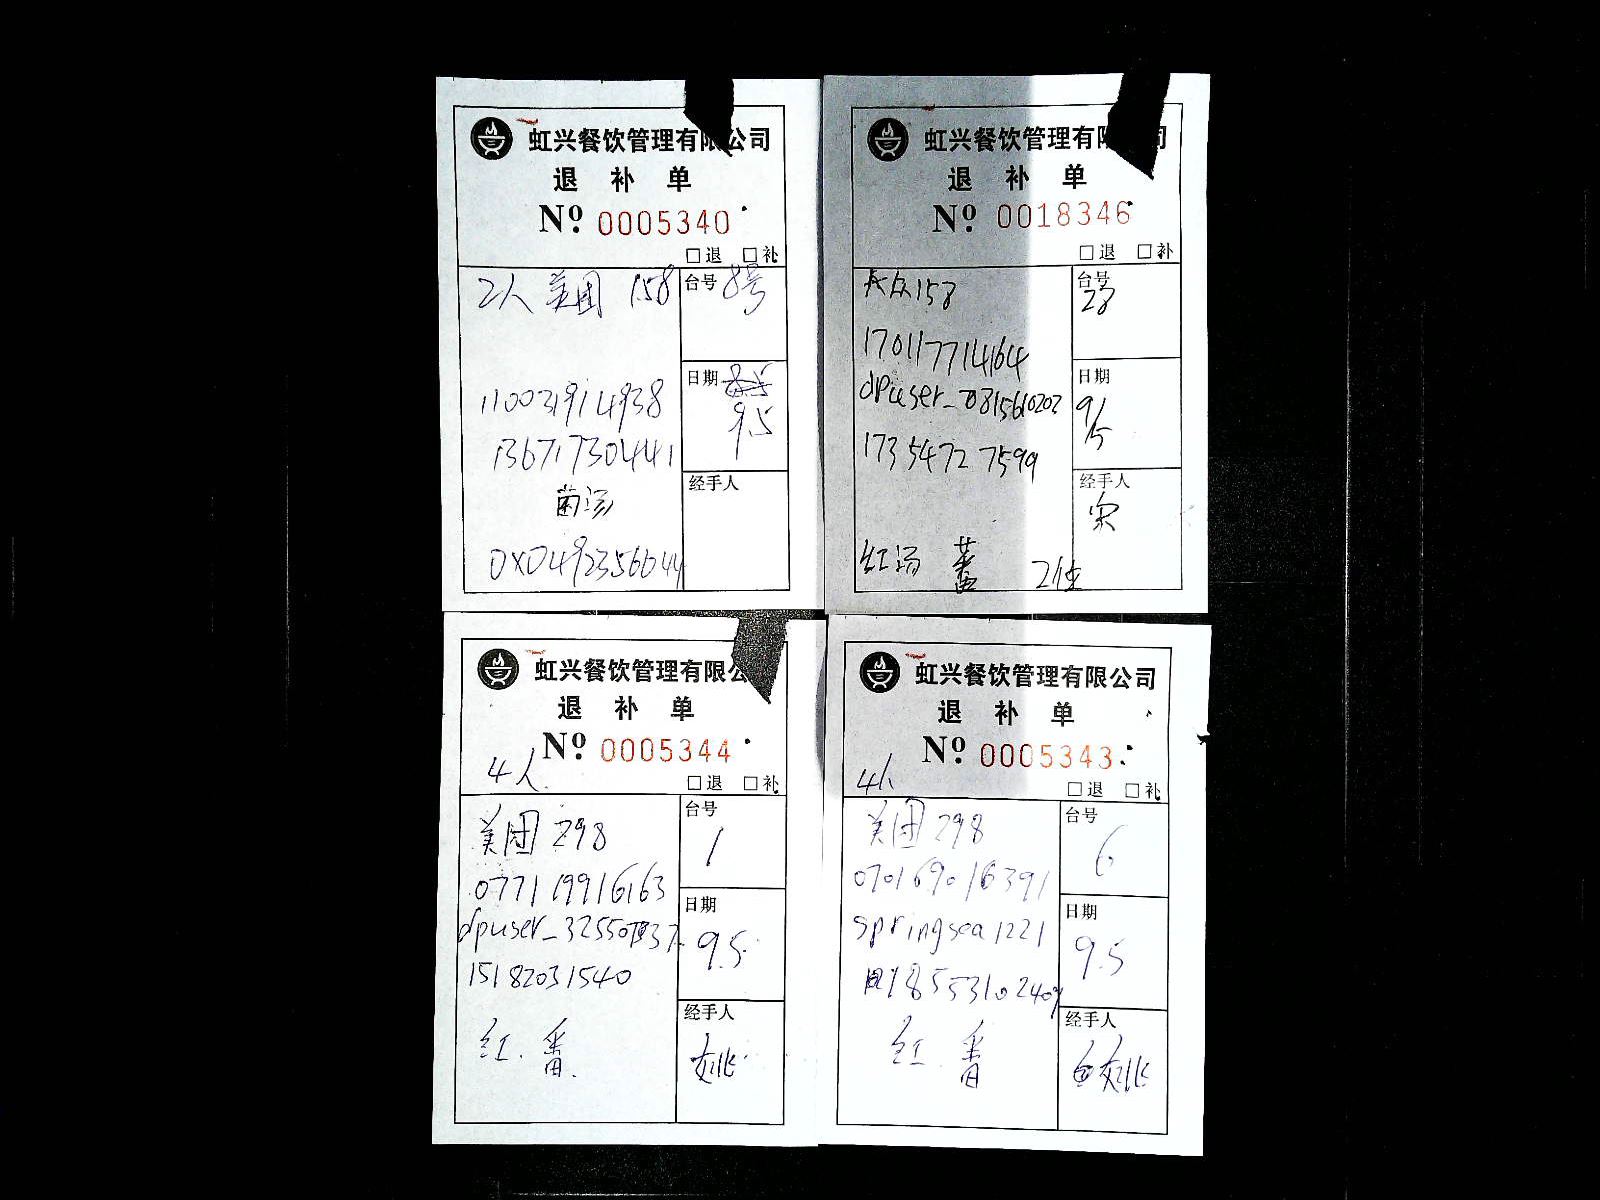 虹兴餐饮管理有限公司
退 补 单
No. 0005340
□退 □补
2人 美团 158
台号 8号
110031914938
日期
9.5
13671730441
菌汤
经手人
0x0492356044
虹兴餐饮管理有限 司
退 补 单
No. 0018346
□退 □补
大众158
台号
28
170117714164
日期
dpuser_70815610202
9/5
17354727599
经手人
宋
红汤 蕃 2位
虹兴餐饮管理有限公
退 补 单
No. 0005344
4人
□退 □补
美团 298
台号
1
077119916163
日期
9.5
15182031540
经手人
红. 番.
虹兴餐饮管理有限公司
退 补 单
No. 0005343
4人
□退 □补
美团 298
台号
6
070169016391
日期
springsea1221
9.5
经手人
红 番